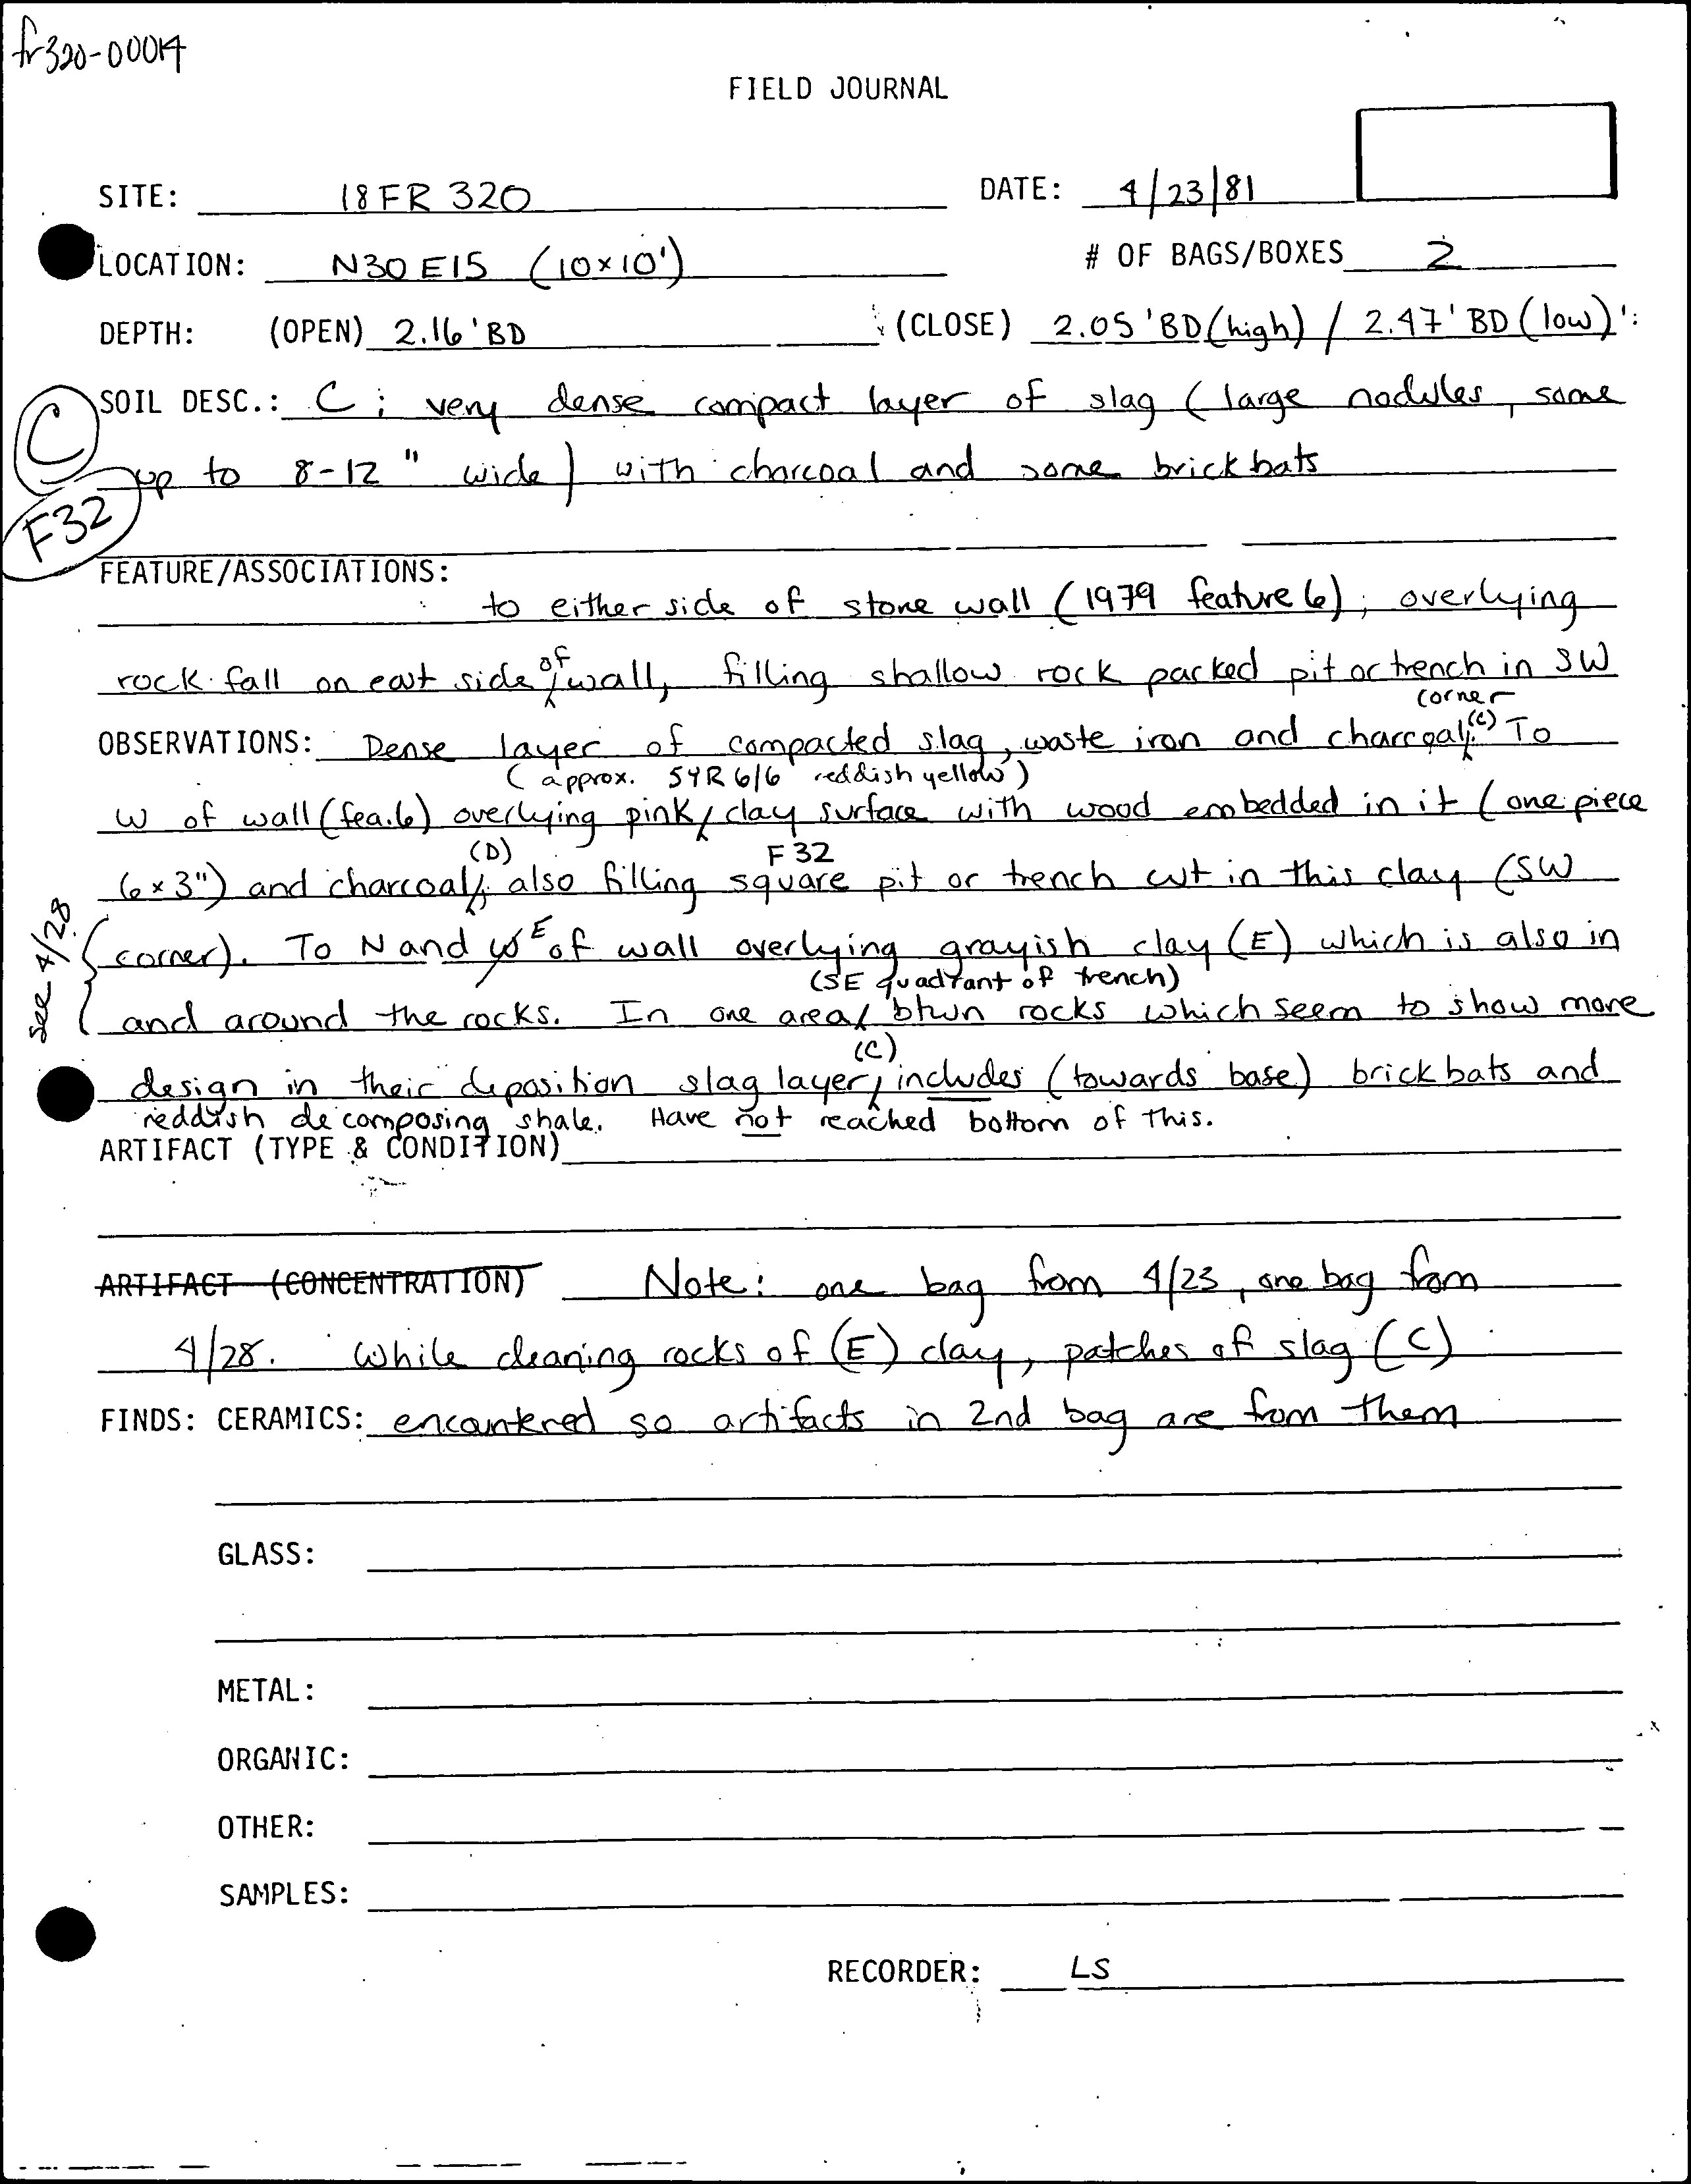 fr320-00014
FIELD JOURNAL
SITE: 18 FR 320 DATE: 4/23/81
LOCATION: N30 E15 (10×10') # OF BAGS/BOXES 2
DEPTH: (OPEN) 2.16'BD (CLOSE) 2.05'BD (high) / 2.47'BD (low)
C
SOIL DESC.: C; very dense compact layer of slag (large nodules, some
up to 8-12" wide) with charcoal and some brickbats
F32
FEATURE/ASSOCIATIONS:
to either side of stone wall (1979 feature 6); overlying
rock fall on east side of wall, filling shallow rock packed pit or trench in SW
corner
OBSERVATIONS: Dense layer of compacted slag, waste iron and charcoal (C). To
(approx. 5YR 6/6 reddish yellow)
W of wall (fea.6) overlying pink clay surface with wood embedded in it (one piece
(D) F32
6×3") and charcoal; also filling square pit or trench cut in this clay (SW
see 4/28
corner). To N and W E of wall overlying grayish clay (E) which is also in
(SE quadrant of trench)
and around the rocks. In one area btwn rocks which seem to show more
(C)
design in their deposition slag layer includes (towards base) brickbats and
reddish decomposing shale. Have not reached bottom of this.
ARTIFACT (TYPE & CONDITION)
ARTIFACT (CONCENTRATION) Note: one bag from 4/23, one bag from
4/28. While cleaning rocks of (E) clay, patches of slag (C)
FINDS: CERAMICS: encountered so artifacts in 2nd bag are from them
GLASS:
METAL:
ORGANIC:
OTHER:
SAMPLES:
RECORDER: LS